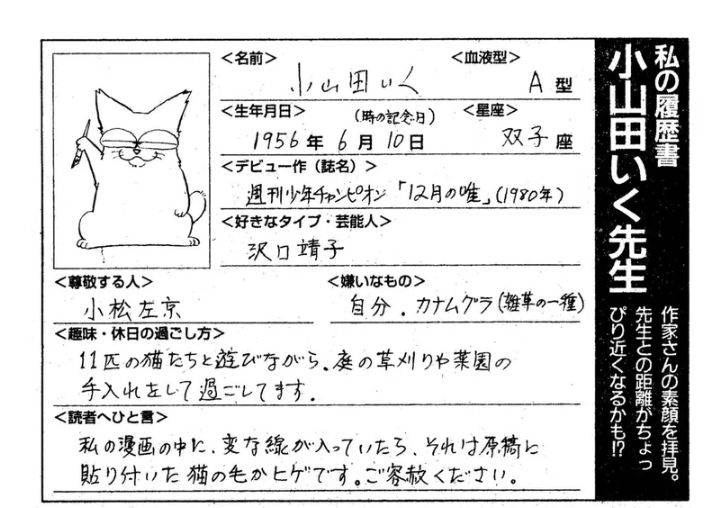 私の履歴書
小山田いく先生
作家さんの素顔を拝見。
先生との距離がちょっ
ぴり近くなるかも!?
<名前>
小山田いく
<血液型>
A型
<生年月日>
(時の記念日)
1956年6月10日
<星座>
双子座
<デビュー作(誌名)>
週刊少年チャンピオン「12月の唯」(1980年)
<好きなタイプ・芸能人>
沢口靖子
<尊敬する人>
小松左京
<嫌いなもの>
自分.カナムグラ(雑草の一種)
<趣味・休日の過ごし方>
11匹の猫たちと遊びながら、庭の草刈りや菜園の
手入れをして過ごしてます.
<読者へひと言>
私の漫画の中に、変な線が入っていたら、それは原稿に
貼り付いた猫の毛かヒゲです。ご容赦ください。